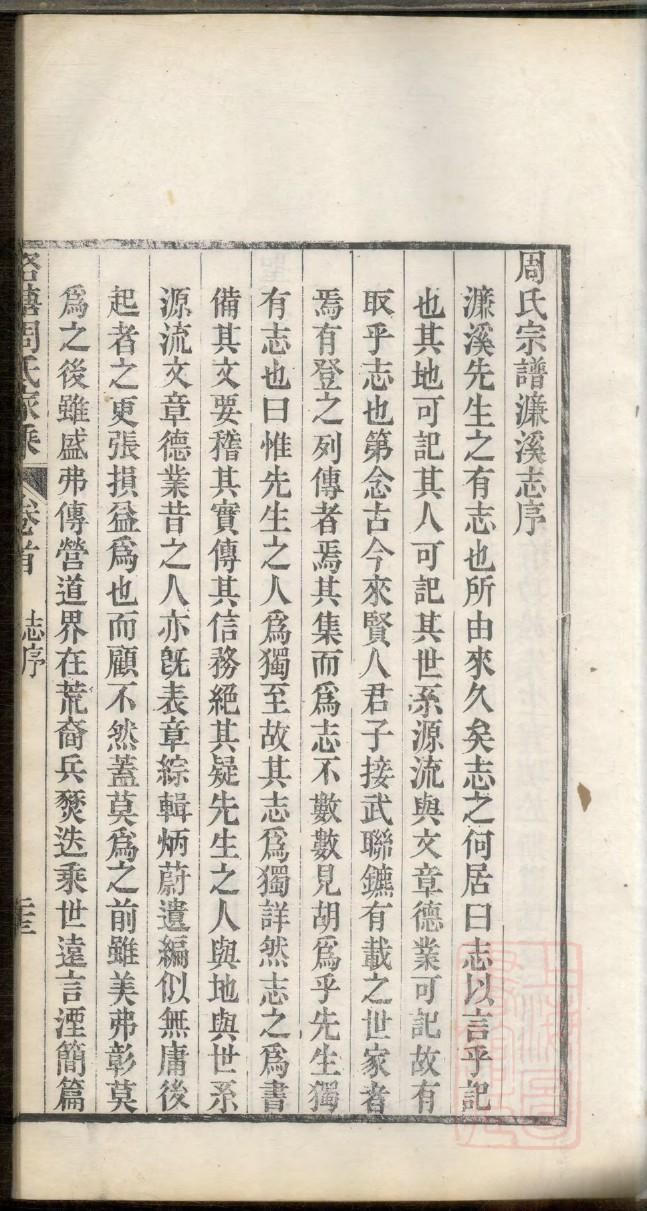 周氏宗譜濂溪志序
濂溪先生之有志也所由來久矣志之何居曰志以言乎記
也其地可記其人可記其世系源流與文章德業可記故有
取乎志也第念古今來賢人君子接武聯鑣有載之世家者
焉有登之列傳者焉其集而爲志不數數見胡爲乎先生獨
有志也曰惟先生之人爲獨至故其志爲獨詳然志之爲書
備其文要稽其實傳其信務絕其疑先生之人與地與世系
源流文章德業昔之人亦旣表章綜輯炳蔚遺編似無庸後
起者之更張損益爲也而顧不然蓋莫爲之前雖美弗彰莫
爲之後雖盛弗傳營道界在荒裔兵燹迭乘世遠言湮簡篇
周氏家乘 卷首 志序